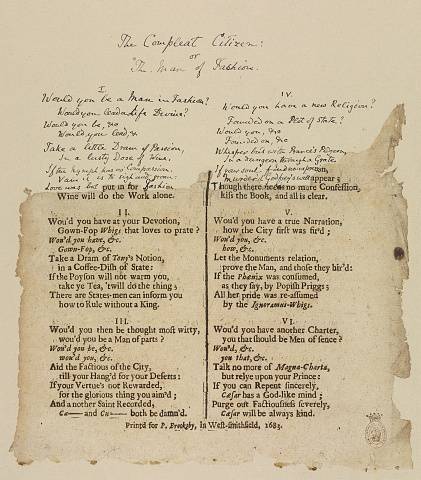 The Compleat Citizen:
or
"The Man of Fashion.
I.
Would you be a Man in Fashion?
Would you lead a Life Divine?
Would you be, &c
Would you lead, &c.
Take a little Dram of Passion,
In a lusty Dose of Wine.
If the Nymph has no Compassion,
Vain it is to sigh and groan:
Love was but put in for Fashion
Wine will do the Work alone.
II.
Wou'd you have at your Devotion,
Gown-Fop Whigs that loves to prate?
Wou'd you have, &c.
Gown-Fop, &c.
Take a Dram of Tony's Notion,
in a Coffee-Dish of State:
If the Poyson will not warm you,
take ye Tea, 'twill do the thing;
There are States-men can inform you
how to Rule without a King.
III.
Wou'd you then be thought most witty,
wou'd you be a Man of parts?
Wou'd you be, &c.
wou'd you, &c.
Aid the Factious of the City,
till your Hang'd for your Deserts:
If your Vertue's not Rewarded,
for the glorious thing you aim'd;
And a nother Saint Recorded,
Ca— and Cu— both be damn'd.
IV.
Would you have a new Religion?
Founded on a Plot of State?
Would you, &c
Founded on, &c
Whisper but with Pance's Pigeon,
In a dungeon through a Grate
If your soul find
Murder'd Godfrey's will appear;
Though there needs no more Confession,
kiss the Book, and all is clear.
V.
Wou'd you have a true Narration,
how the City first was fir'd;
Wou'd you, &c.
how, &c.
Let the Monuments relation,
prove the Man, and those they hir'd:
If the Phœnix was consumed,
as they say, by Popish Priggs;
All her pride was re-assumed
by the Ignoramus-Whigs.
VI.
Wou'd you have another Charter,
you that should be Men of sence?
Wou'd, &c.
you that, &c.
Talk no more of Magna-Charta,
but relye upon your Prince:
If you can Repent sincerely,
Cæsar has a God-like mind;
Purge out Factiousness severely,
Cæsar will be always kind.
Printed for P. Brooksby, in West-smithfield, 1683.